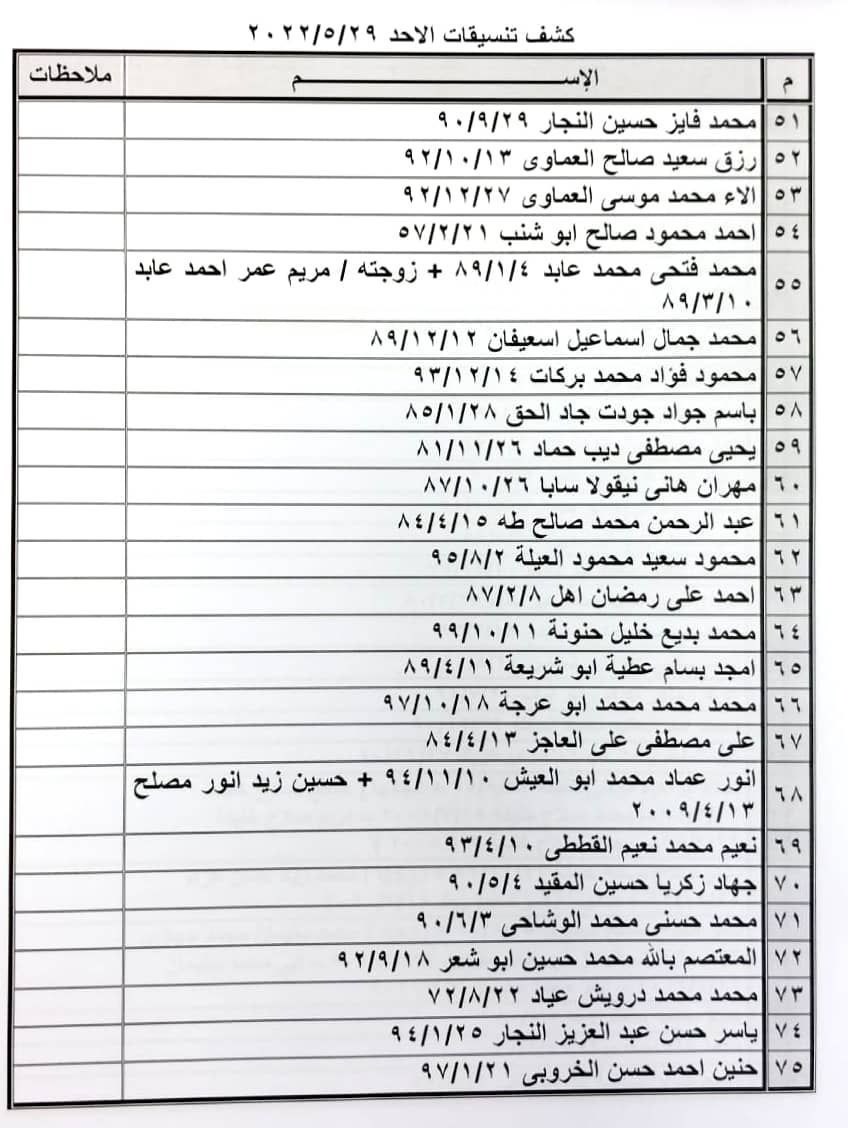 كشف تنسيقات الاحد ٢٠٢٢/٥/٢٩
م الإســـــــم ملاحظات
٥١ محمد فايز حسين النجار ٩٠/٩/٢٩
٥٢ رزق سعيد صالح العماوى ٩٢/١٠/١٣
٥٣ الاء محمد موسى العماوى ٩٢/١٢/٢٧
٥٤ احمد محمود صالح ابو شنب ٥٧/٢/٢١
٥٥ محمد فتحى محمد عابد ٨٩/١/٤ + زوجته / مريم عمر احمد عابد
٨٩/٣/١٠
٥٦ محمد جمال اسماعيل اسعيفان ٨٩/١٢/١٢
٥٧ محمود فؤاد محمد بركات ٩٣/١٢/١٤
٥٨ باسم جواد جودت جاد الحق ٨٥/١/٢٨
٥٩ يحيى مصطفى ديب حماد ٨١/١١/٢٦
٦٠ مهران هانى نيقولا سابا ٨٧/١٠/٢٦
٦١ عبد الرحمن محمد صالح طه ٨٤/٤/١٥
٦٢ محمود سعيد محمود العيلة ٩٥/٨/٢
٦٣ احمد على رمضان اهل ٨٧/٢/٨
٦٤ محمد بديع خليل حنونة ٩٩/١٠/١١
٦٥ امجد بسام عطية ابو شريعة ٨٩/٤/١١
٦٦ محمد محمد محمد ابو عرجة ٩٧/١٠/١٨
٦٧ على مصطفى على العاجز ٨٤/٤/١٣
٦٨ انور عماد محمد ابو العيش ٩٤/١١/١٠ + حسين زيد انور مصلح
٢٠٠٩/٤/١٣
٦٩ نعيم محمد نعيم القططى ٩٣/٤/١٠
٧٠ جهاد زكريا حسين المقيد ٩٠/٥/٤
٧١ محمد حسنى محمد الوشاحى ٩٠/٦/٣
٧٢ المعتصم بالله محمد حسين ابو شعر ٩٢/٩/١٨
٧٣ محمد محمد درويش عياد ٧٢/٨/٢٢
٧٤ ياسر حسن عبد العزيز النجار ٩٤/١/٢٥
٧٥ حنين احمد حسن الخروبى ٩٧/١/٢١